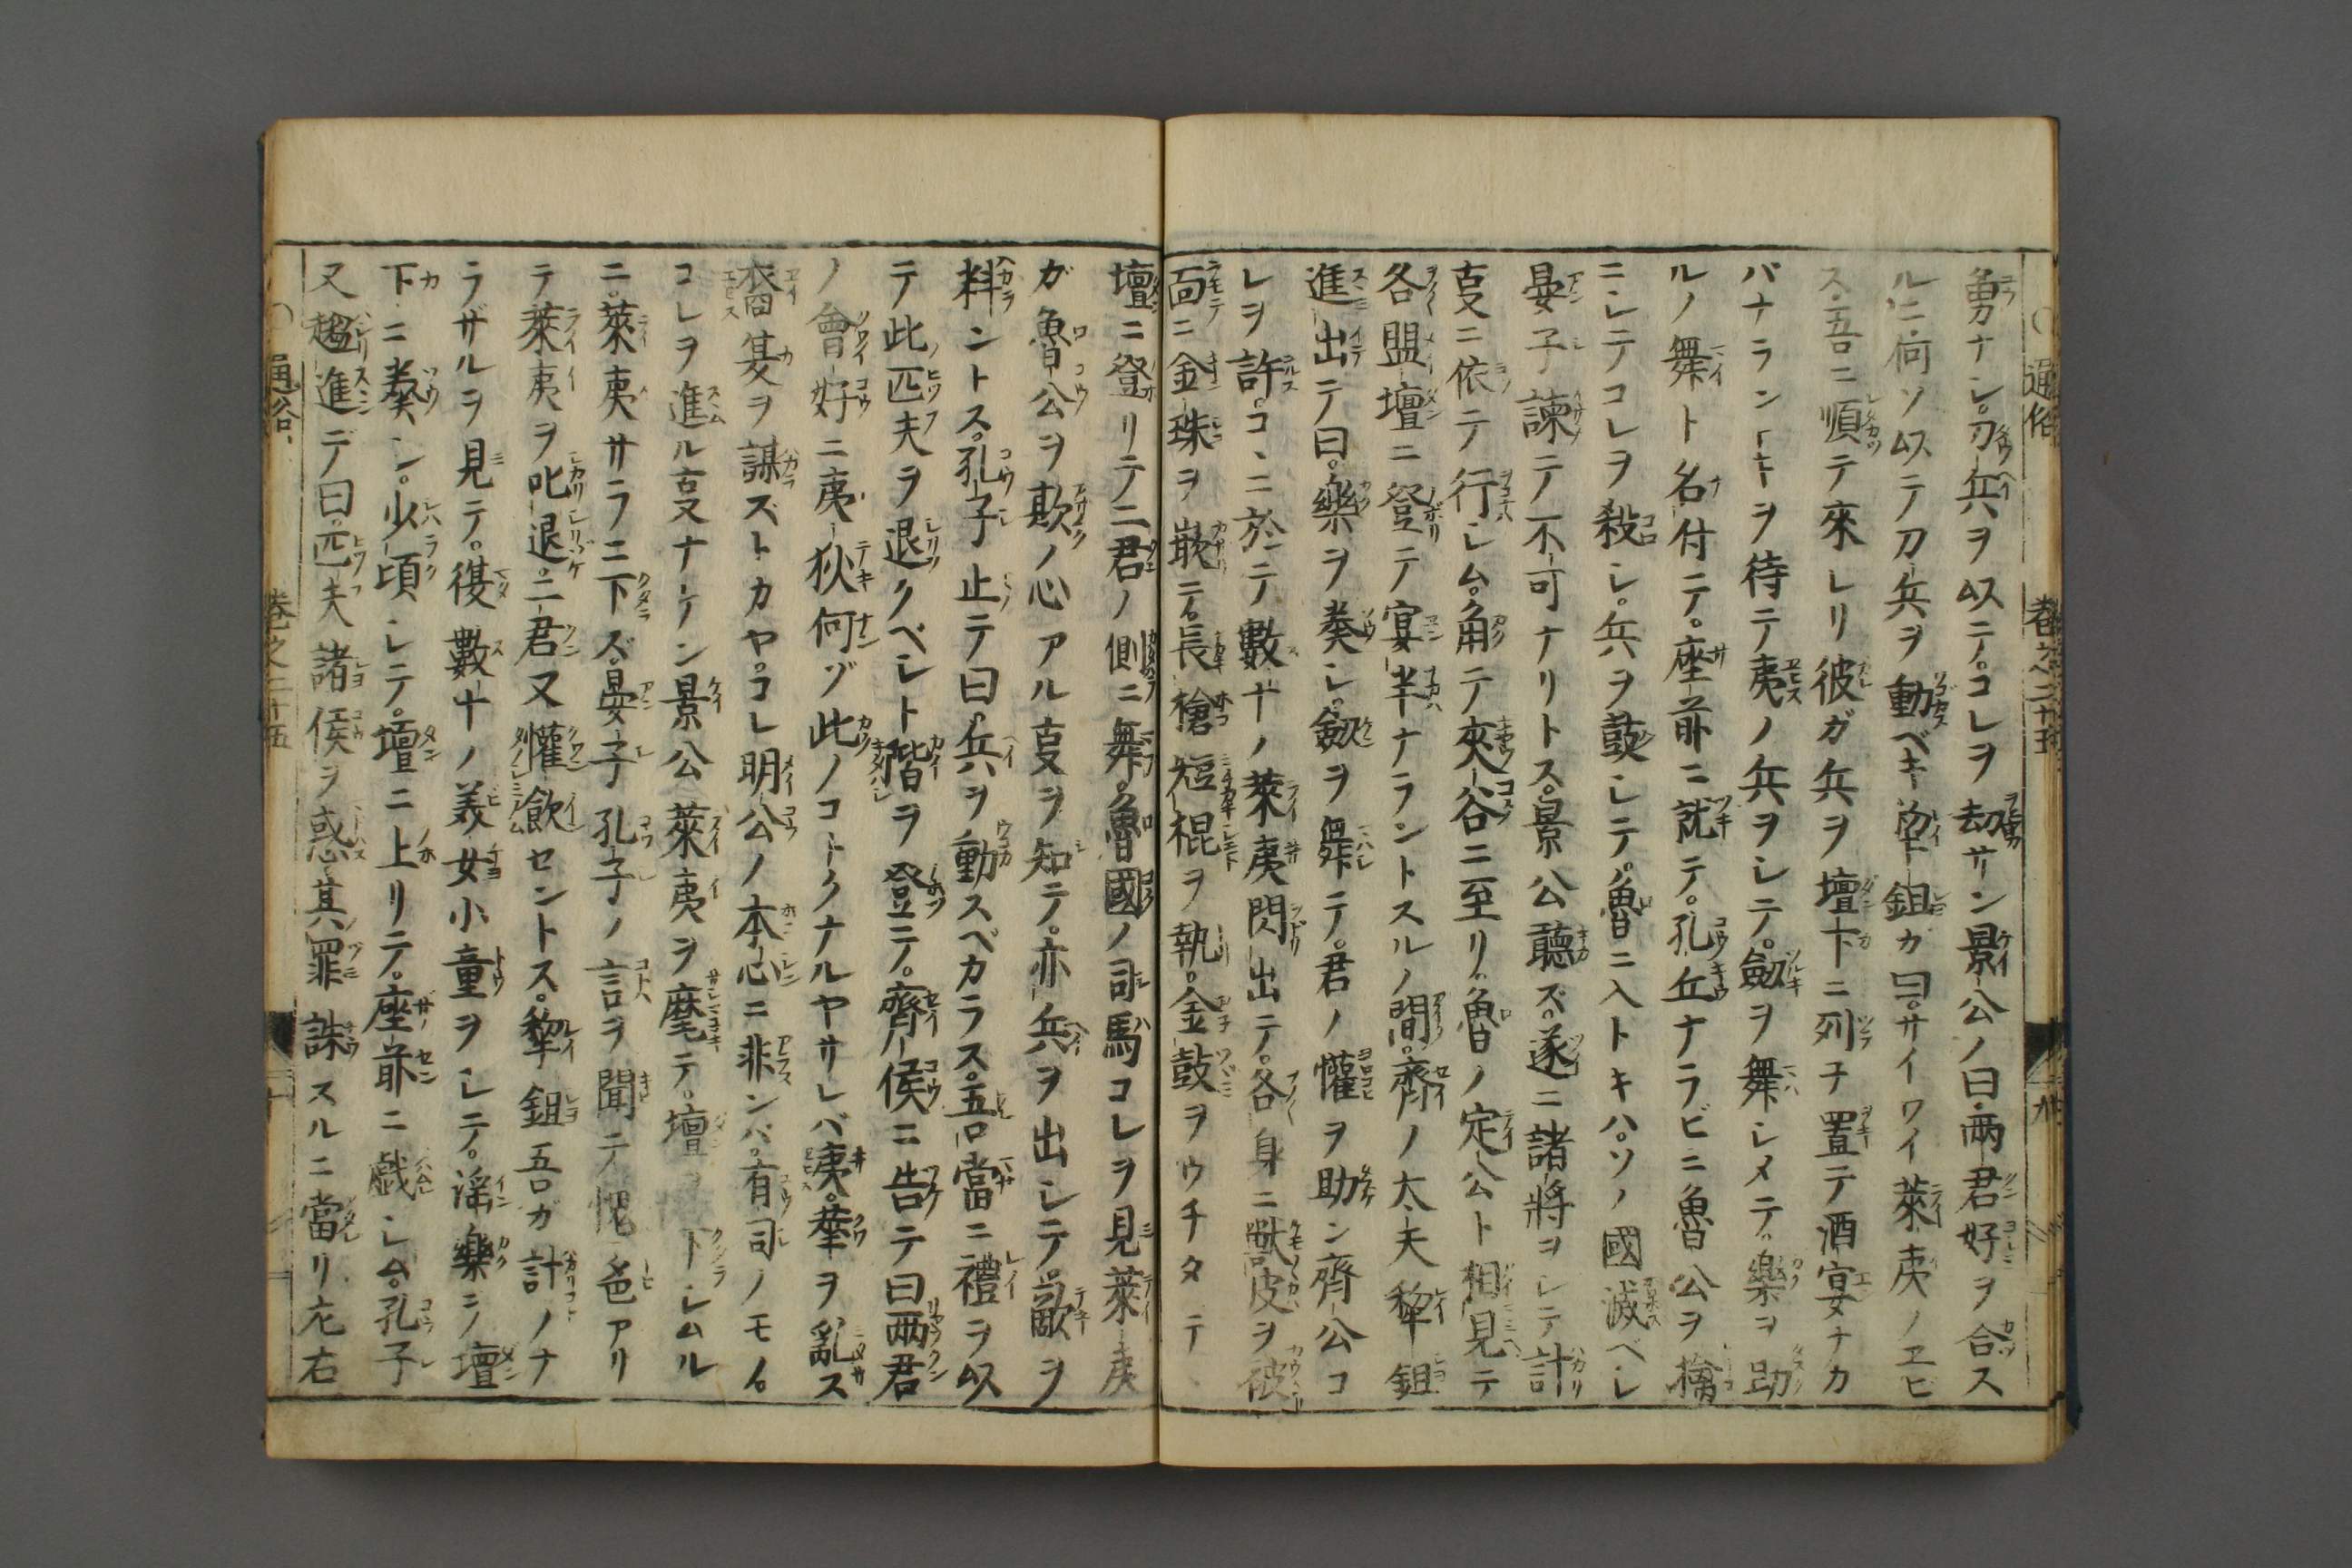 通俗 卷之二十五 九
勇ナシ。刃兵ヲ以テ。コレヲ劫サン景公ノ曰両君好ヲ合ス
ルニ何ソ以テ刀兵ヲ動ベキ犂鉏カ曰。サイワイ萊夷ノヱビ
ス。吾ニ順テ來レリ彼ガ兵ヲ壇下ニ列子置テ酒宴ナカ
バナラントキヲ待テ夷ノ兵ヲシテ。劔ヲ舞シメテ。樂ヲ助
ルノ舞ト名付テ。座前ニ就テ。孔丘ナラビニ魯公ヲ擒
ニシテコレヲ殺シ。兵ヲ鼓シテ。魯ニ入トキハ。ソノ國滅ベシ
晏子諫テ不可ナリトス。景公聽ズ。遂ニ諸將ヲシテ計
叓ニ依テ行シム。角テ夾谷ニ至リ。魯ノ定公ト相見テ
各盟壇ニ登テ宴半ナラントスルノ間。齊ノ太夫犂鉏
進出テ曰。樂ヲ奏シ。劔ヲ舞テ。君ノ懽ヲ助ン齊公コ
レヲ許。コヽニ於テ數十ノ萊夷閃出テ。各身ニ獸皮ヲ彼
靣ニ金珠ヲ嵌テ。長槍短棍ヲ執。金鼓ヲウチタテヽ
壇ニ登リテ二君ノ側ニ舞。魯國ノ司馬コレヲ見萊夷
ガ魯公ヲ欺ノ心アル叓ヲ知テ。亦兵ヲ出シテ。敵ヲ
料ントス。孔子止テ曰。兵ヲ動スベカラス。吾當ニ禮ヲ以
テ此匹夫ヲ退クベシト階ヲ登テ。齊侯ニ告テ曰両君
ノ會好ニ夷狄何ヅ此ノコトクナルヤサレバ夷。華ヲ亂ス
裔夏ヲ謀ズトカヤ。コレ明公ノ本心ニ非ンバ。有司ノモノ。
コレヲ進ル叓ナケン景公萊夷ヲ麾テ。壇ヲ下シムル
ニ。萊夷サラニ下ズ。晏子孔子ノ言ヲ聞テ愧色アリ
テ萊夷ヲ叱退。二君又懽飲セントス。犂鉏吾ガ計ノナ
ラザルヲ見テ。復數十ノ美女小童ヲシテ。淫樂ヲ壇
下ニ奏ン。少頃シテ。壇ニ上リテ。座前ニ戯シム。孔子
又趨進デ曰。匹夫諸侯ヲ惑其罪誅スルニ當リ左右
通俗 卷之二十五 十